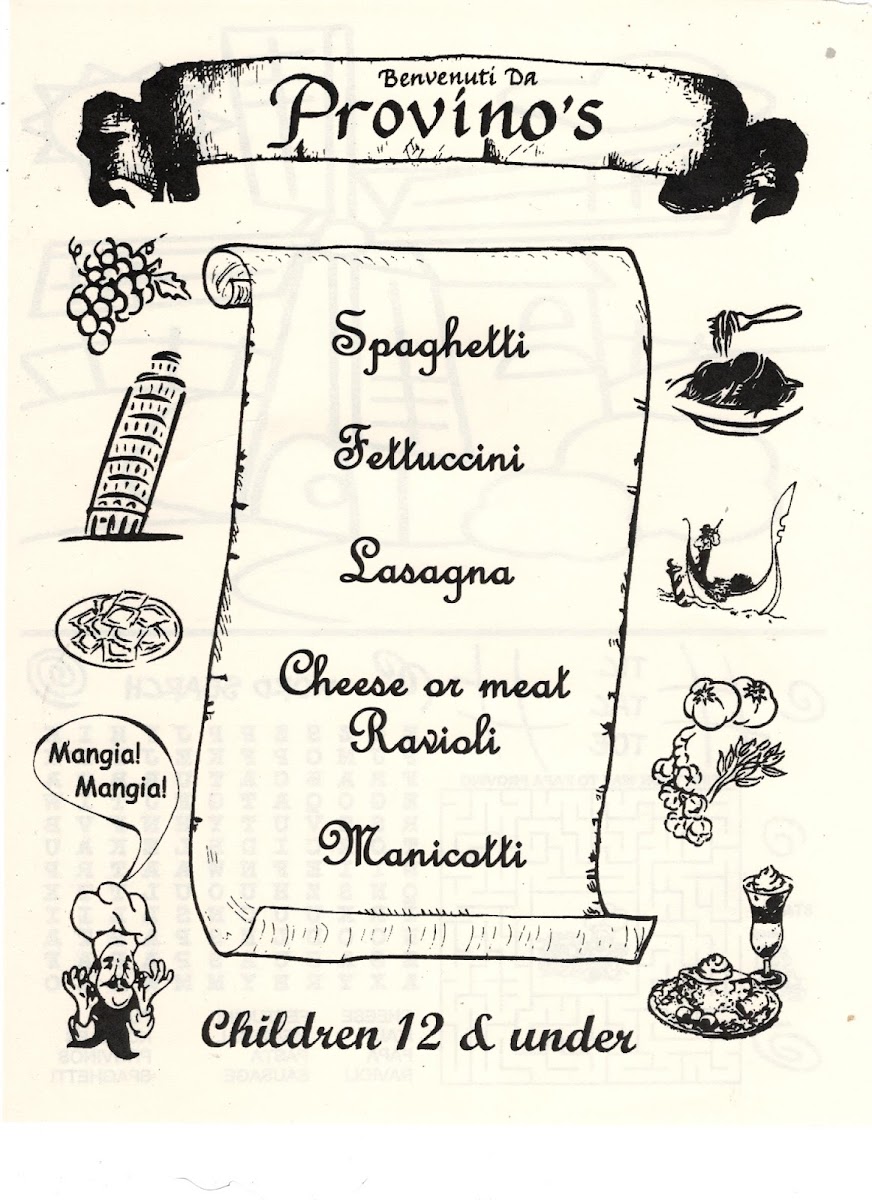 Benvenuti Da
Provino's
Spaghetti
Fettuccini
Lasagna
Cheese or meat
Ravioli
Manicotti
Mangia!
Mangia!
Children 12 & under